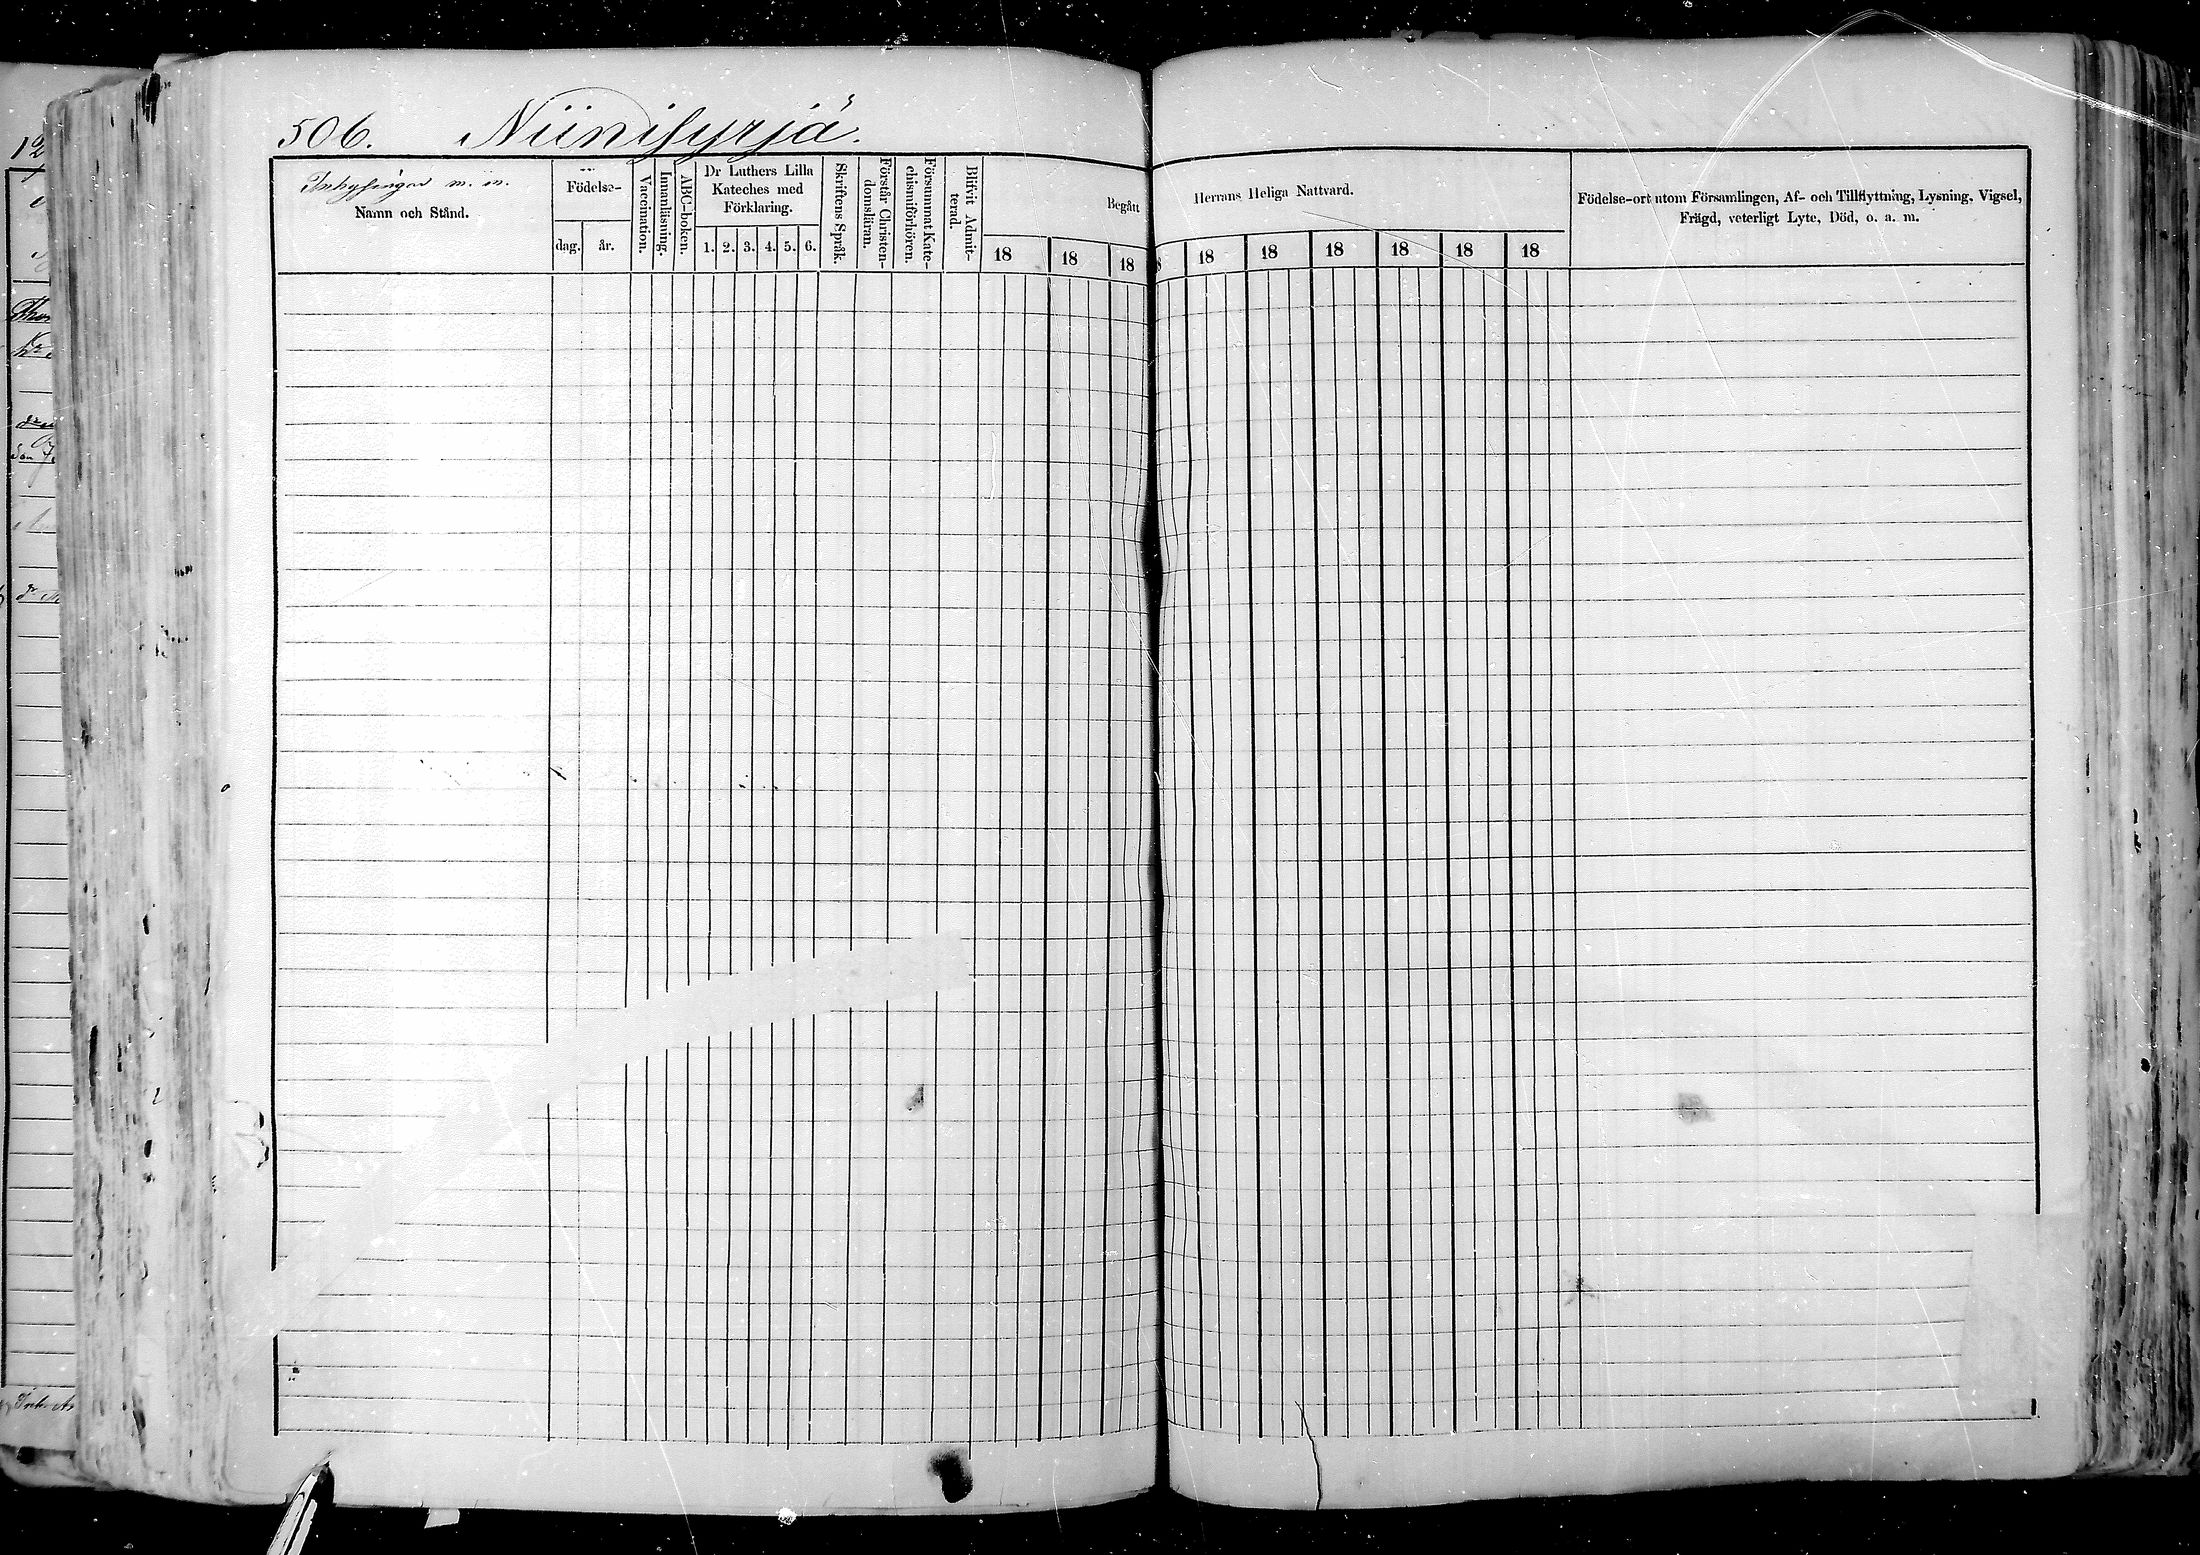 506. Niinisyrjä.
Inhysingar m. m.
Namn och Stånd.
Födelse-
dag. år.
Vaccination.
Innanläsning.
ABC-boken.
Dr Luthers Lilla
Kateches med
Förklaring.
1. 2. 3. 4. 5. 6.
Skriftens Språk.
Förstår Christen-
domsläran.
Försummat Kate-
chismiförhören.
Blifvit Admit-
terad.
Begått Herrans Heliga Nattvard.
18 18 18 8 18 18 18 18 18 18
Födelse-ort utom Församlingen, Af- och Tillflyttning, Lysning, Vigsel,
Frägd, veterligt Lyte, Död, o. a. m.